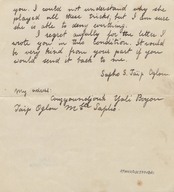 you. I could not understand why she
played all these tricks, but I am sure
she is able to deny everything.
I regret awfully for the letter I
wrote you in this condition. It would
be very kind from your part if you
would send it back to me.
Sapho S. Taip Oglou
My adress
Yali Boyou
Taip Oglou Sapho